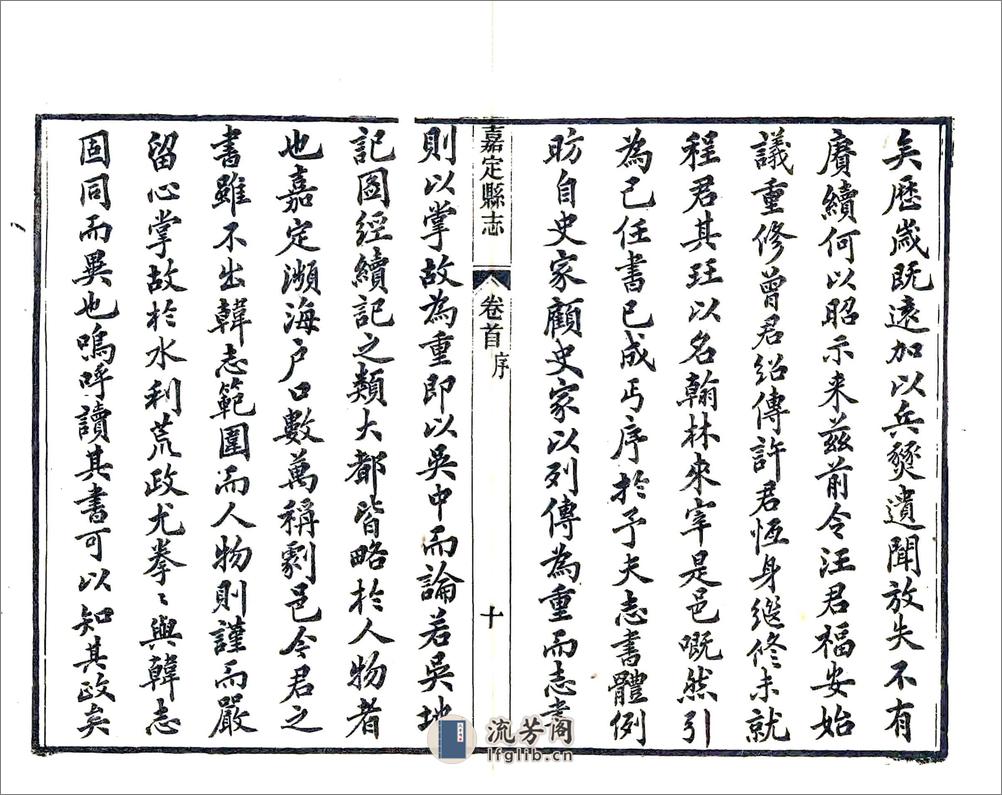 矣歷歲既遠加以兵燹遺聞放失不有
賡續何以昭示来茲前令汪君福安始
議重修曾君紹傳許君恆身繼修未就
程君其珏以名翰林來宰是邑嘅然引
為己任書已成丐序於予夫志書體例
昉自史家顧史家以列傳為重而志書
嘉定縣志
卷首
序
十
則以掌故為重即以吳中而論若吳地
記圖經續記之類大都皆略於人物者
也嘉定瀕海户口數萬稱劇邑令君之
書雖不出韓志範圍而人物則謹而嚴
留心掌故於水利荒政尤拳〻與韓志
固同而異也嗚呼讀其書可以知其政矣
流芳阁
lfglib.cn